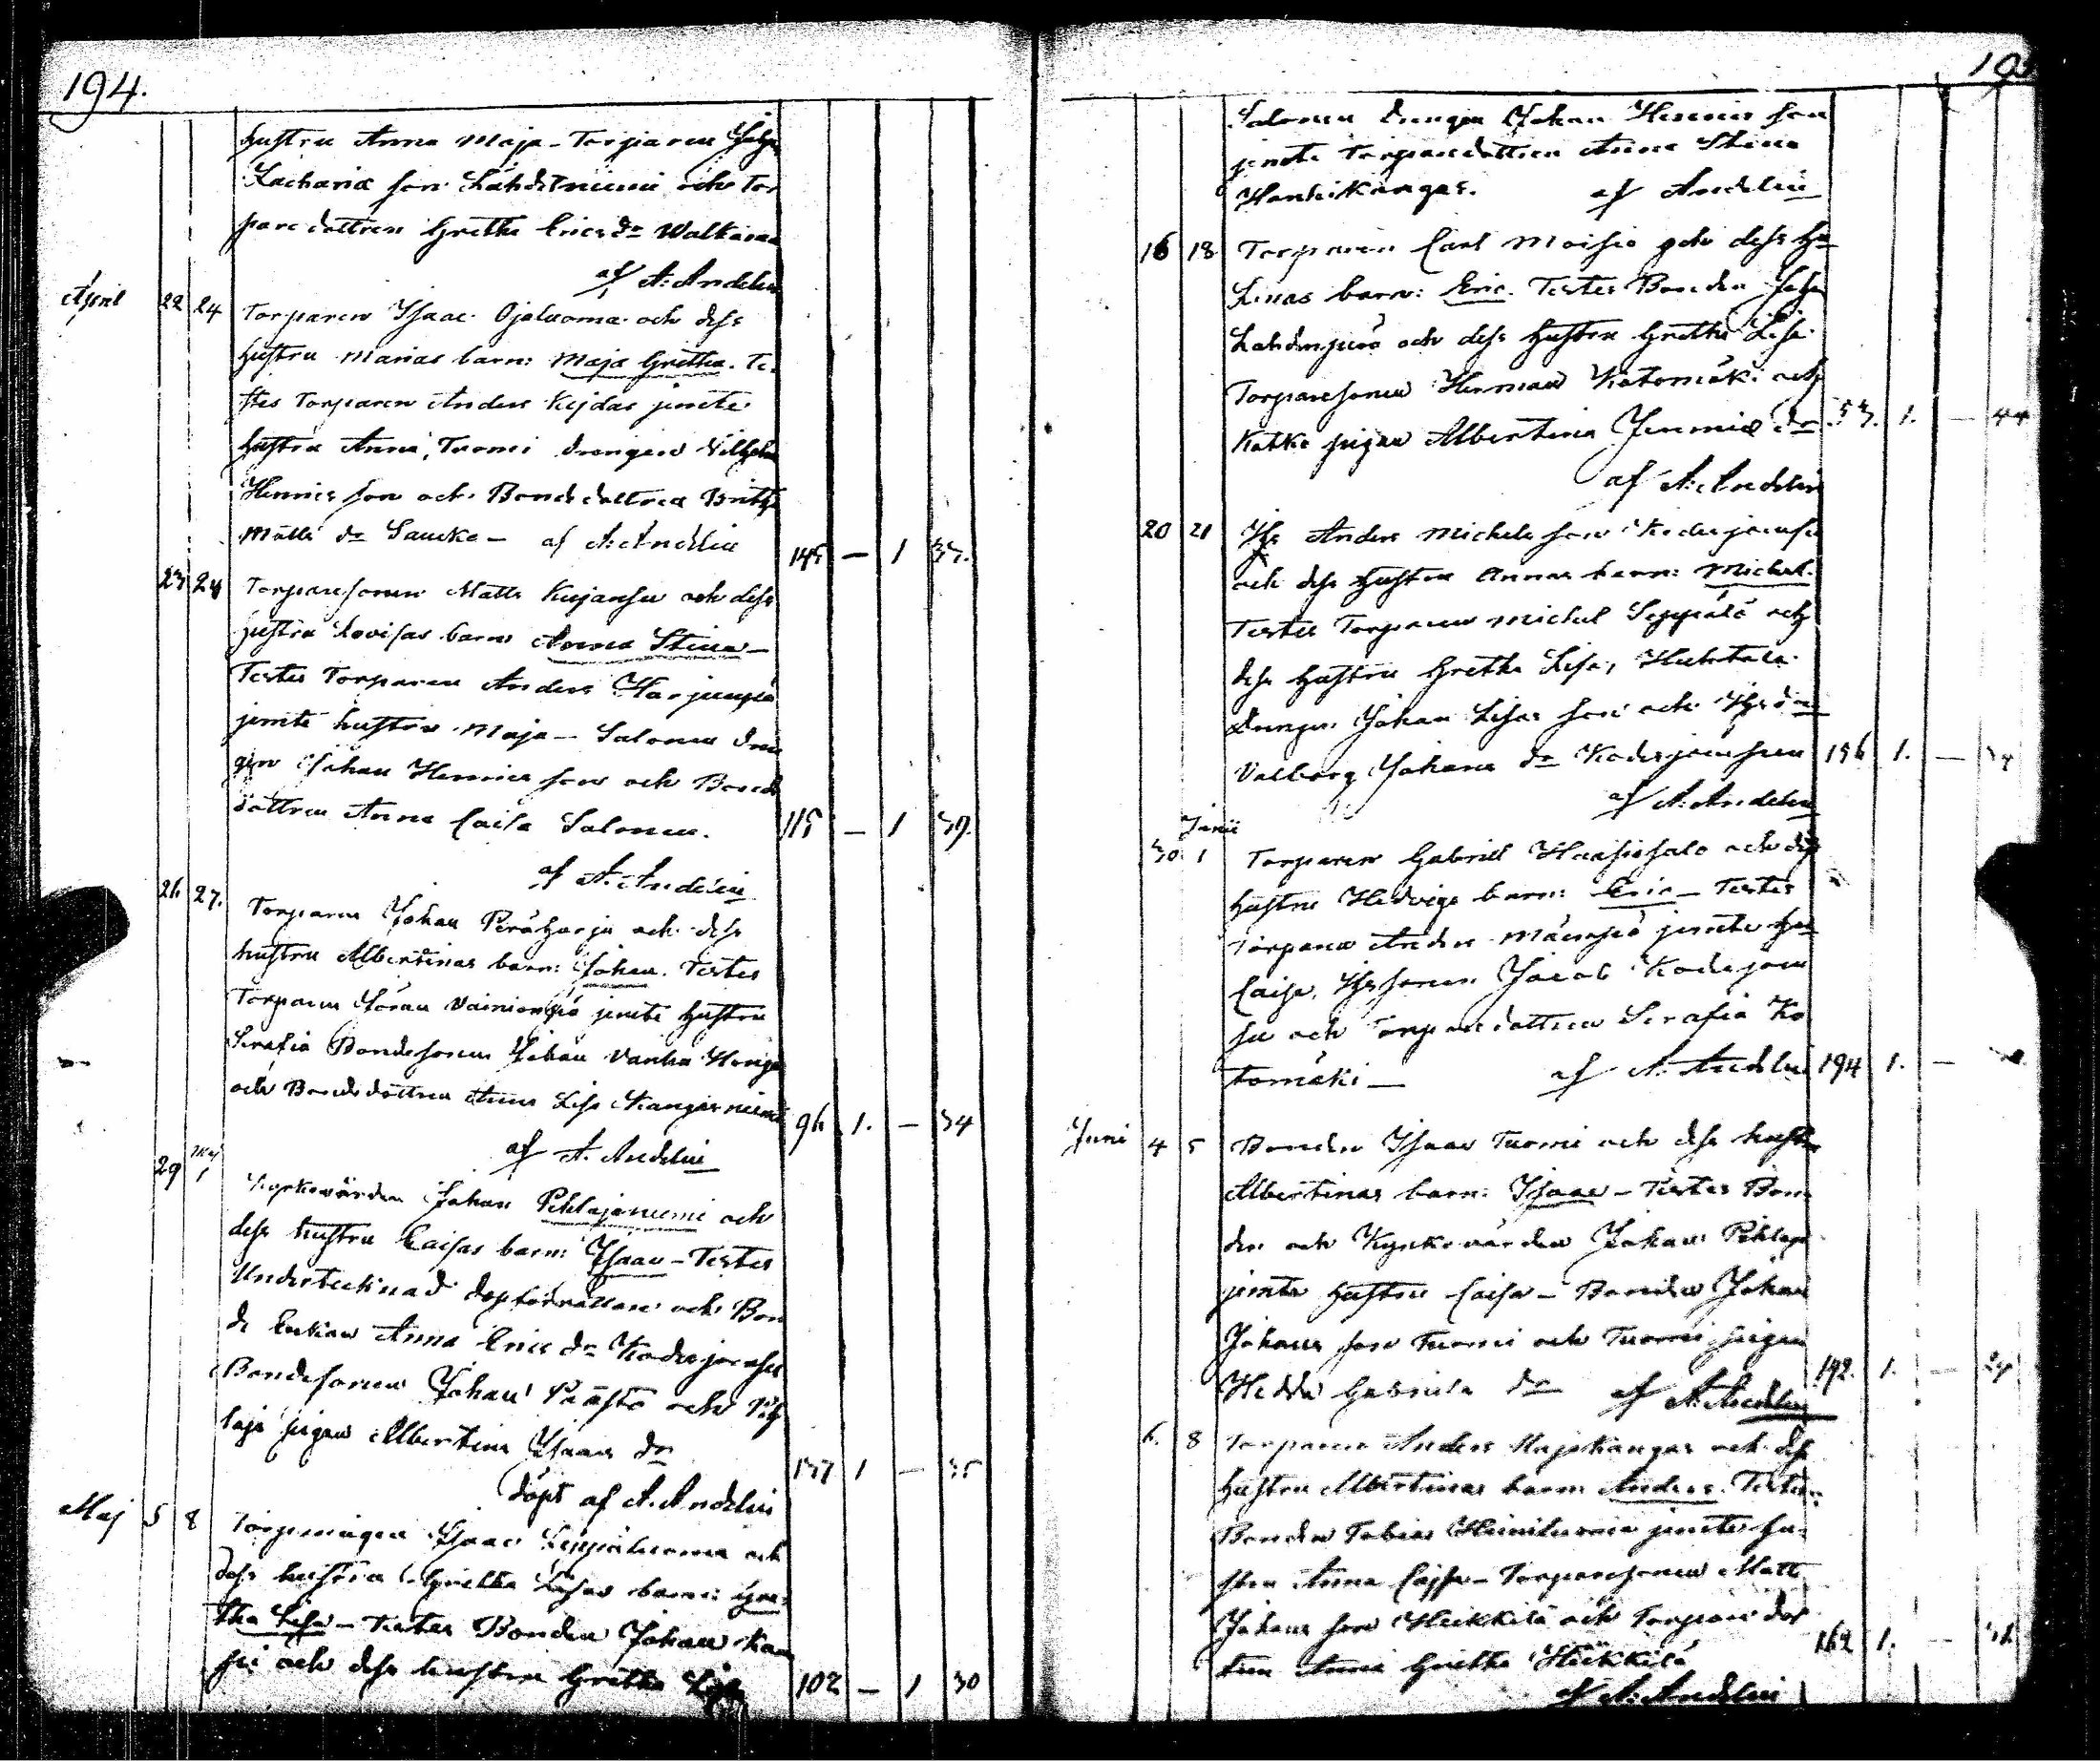 194.
hustru Anna Maja - Torparen
Zachariæ son Lähdetniemi och Tor
pare dottren Gretha Erics dr Walkama
af A: Andelin
April 22 24 Torparen Isaac Ojaluoma och dess
hustru Marias barn: Maja Gretha. Te-
stes Torparen Anders Kejdas jemte
hustru Anna, Tuomi drengen Vilhelm
Henrics son och Bonde dottren Britha
Matts dr Saucko - af A: Andelin 145 — 1 33.
23 24 Torparesonen Matts Kujansu och dess
hustru Lovisas barn Anna Stina -
Testes Torparen Anders Harjunpä
jemte hustru Maja - Salonen dren
gen Johan Henrics son och Bonde
dottren Anna Caisa Salonen. 115 — 1 39.
af A. Andelin
26 27. Torparen Johan Peräharju och dess
hustru Albertinas barn: Johan. Testes
Torparen Göran Vainionpä jemte hustru
Serafia Bondesonen Johan Vanha Honge
och Bondedottren Anna Lisa Kangasniemi 96 1. — 34
af A. Andelin
29 Maj 1 Kyrkovärden Johan Pihlajaniemi och
dess hustru Caisas barn: Isaac - Testes
Undertecknad dopförrättare och Bon
de Enkan Anna Erics dr Koderjoensu
Bondesonen Johan Päästö och Pih
laja pigan Albertina Isaacs dr 137 1 — 35
döpt af A. Andelin
Maj 5 8 Torpmågen Isaac Leppäluoma och
dess hustru Gretha Lisas barn: Gre-
tha Lisa - Testes Bonden Johan Kam
pi och dess hustru Gretha Lisa 102 — 1 30
Salonen drengen Johan Henrics son
jemte Torparedottren Anna Stina
Hanhikangas. af Andelin
16 18 Torparen Carl Moisio och dess hu
Linas barn: Eric. Testes Bonden
Lahdenperä och dess hustru Gretha Lisa
Torparesonen Herman Katomäki och
Katko pigan Albertina Jeremiæ dr 53. 1. — 44
af A: Andelin
20 21 Anders Michels son Koderjoensu
och dess hustru Annas barn: Michel.
Testes Torparen Michel Seppälä och
dess hustru Gretha Lisa, Huhtala
drengen Johan Lisas son och
Valborg Johans dr Koderjoensuu 156 1. —
af A: Andelin
30 Junii 1 Torparen Gabriel Haapasalo och dess
hustru Hedvigs barn: Eric - Testes
Torparen Anders Mäenpä jemte hu
Caisa, sonen Jacob Koderjoen
su och Torpare dottren Serafia Ko
tomäki — af A. Andelin 194 1. —
Juni 4 5 Bonden Isaac Tuomi och dess hustru
Albertinas barn: Isaac - Testes Bon
den och Kyrkovärden Johan Pihlaja
jemte hustru Caisa - Bonden Johan
Johans son Tuomi och Tuomi pigan
Hedda Gabriels dr af A: Andelin 192. 1. — 24
6. 8 Torparen Anders Majakangas och dess
hustru Albertinas barn Anders. Testes:
Bonden Tobias Heiniluoma jemte hu-
stru Anna Cajsa - Torparesonen Matts
Johans son Heikkilä och Torpare dot
tren Anna Gretha Heikkilä 162 1. —
af A: Andelin